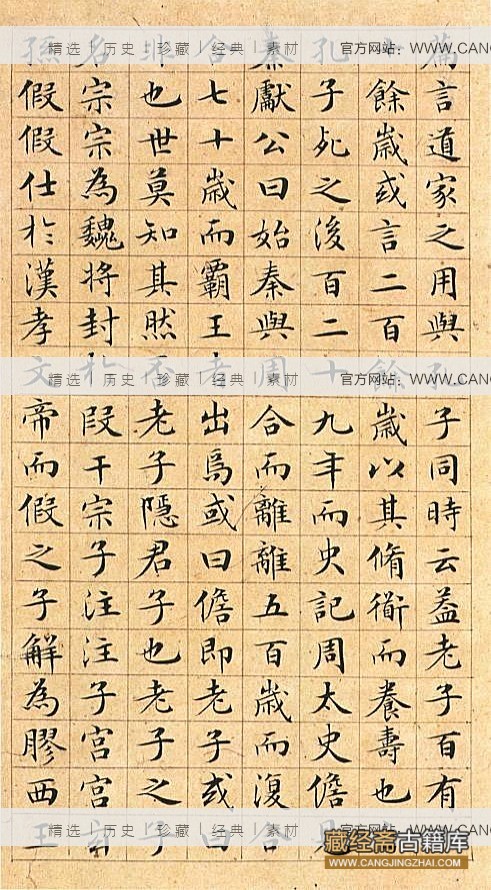 篇言道家之用與孔子同時云蓋老子百有
餘歲或言二百餘歲以其脩衜而養壽也
孔子死之後百二十九年而史記周太史儋見
秦獻公曰始秦與周合而離離五百歲而復合
合七十歲而霸王者出焉或曰儋即老子或曰
非也世莫知其然否老子隱君子也老子之子
名宗宗為魏將封於段干宗子注注子宮宮玄
孫假假仕於漢孝文帝而假之子解為膠西王
精选 | 历史 | 珍藏 | 经典 | 素材 官方网站: WWW.CANG
精选 | 历史 | 珍藏 | 经典 | 素材 官方网站: WWW.CANG
精选 | 历史 | 珍藏 | 经典 | 素材 官方网站: WWW.CANG
藏经斋古籍库
WWW.CANGJINGZHAI.COM